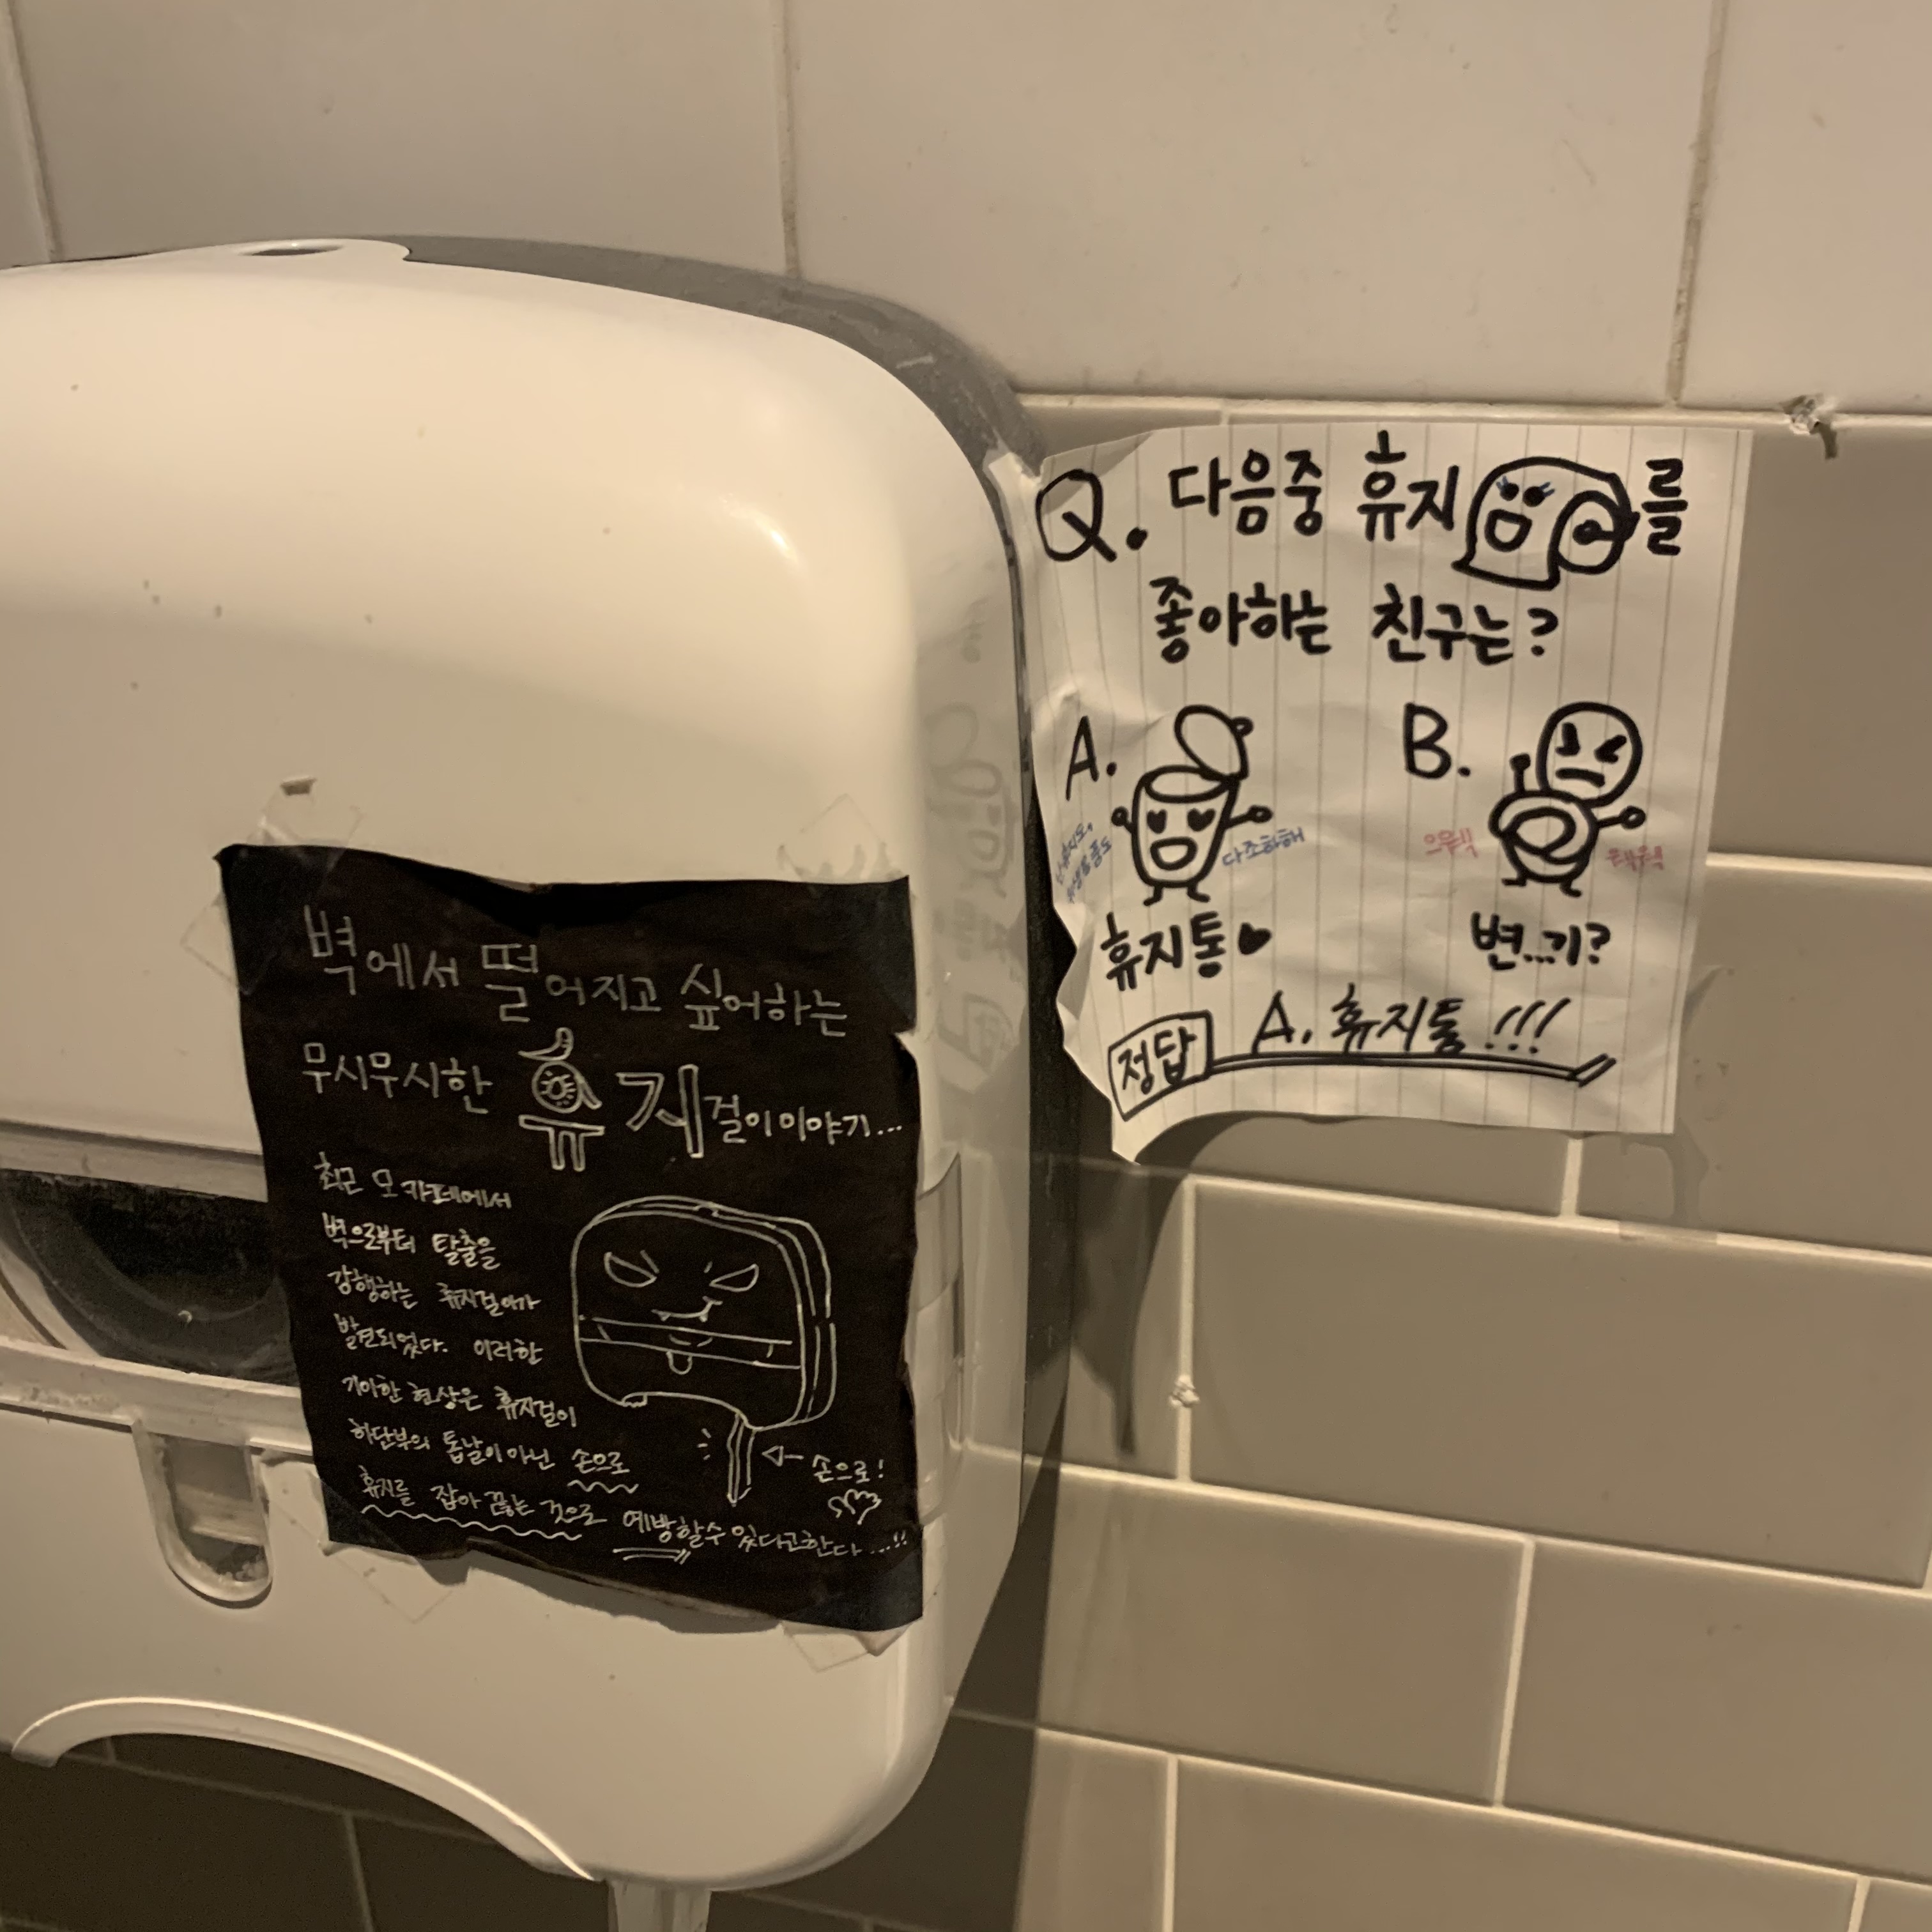 벽에서 떨어지고 싶어하는
무시무시한 휴지걸이 이야기...
최근 모 카페에서
벽으로부터 탈출을
강행하는 휴지걸이가
발견되었다. 이러한
기이한 현상은 휴지걸이
하단부의 톱날이 아닌 손으로
휴지를 잡아 끊는 것으로 예방할수 있다고한다...!!
손으로!
Q. 다음중 휴지를
좋아하는 친구는?
A.
다조하해
휴지통♥
B.
으웩
웩웩
변...기?
정답 A. 휴지통!!!